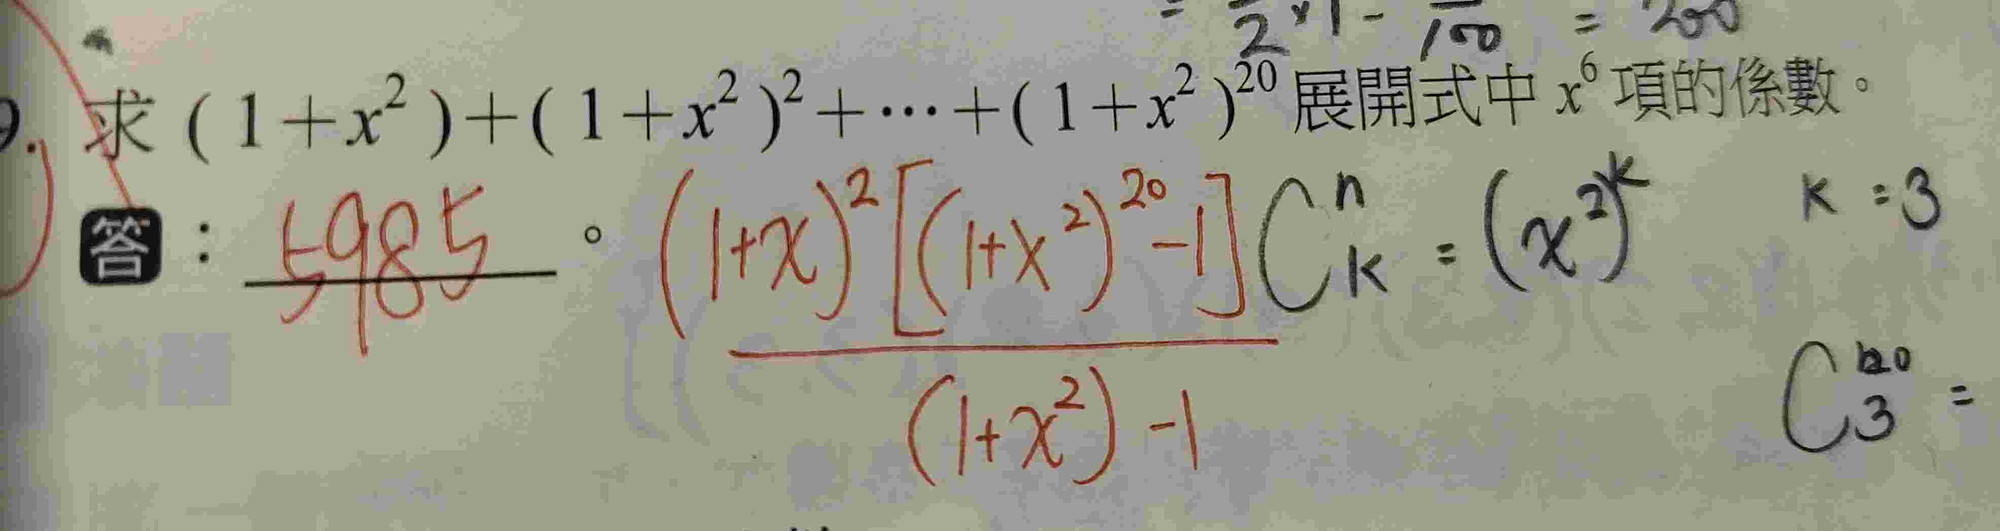 = 2 × 1 - 100 = 200
9. 求 (1+x²)+(1+x²)²+⋯+(1+x²)²⁰ 展開式中 x⁶ 項的係數。
答：5985。 (1+x)²[(1+x²)²⁰-1] Cⁿₖ = (x²)ᵏ K = 3
(1+x²)-1 C²⁰₃ =